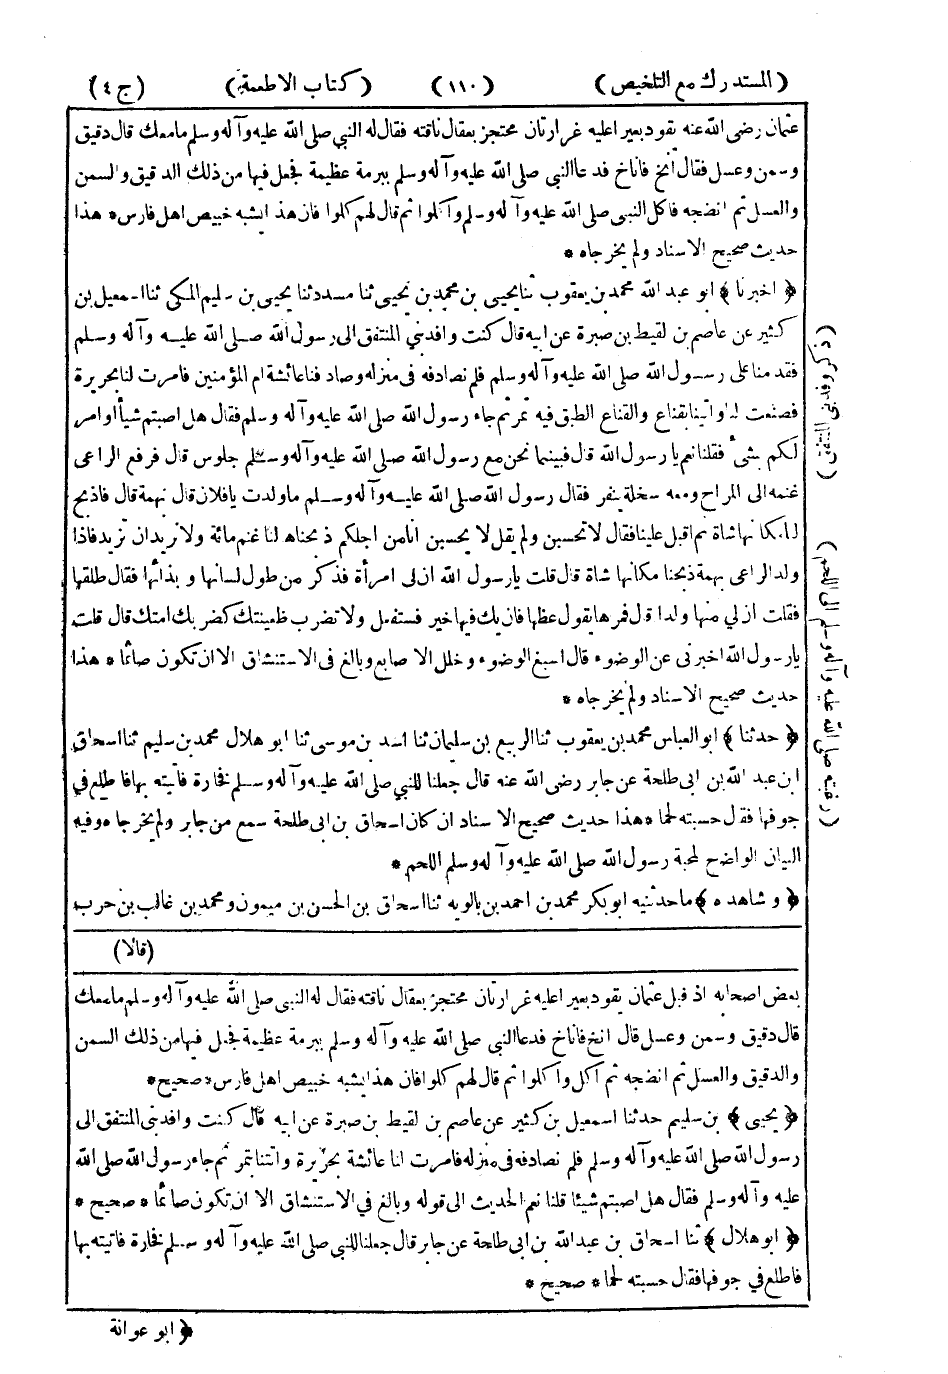 (المستدرك مع التلخيص) (١١٠) (كتاب الاطعمة) (ج ٤)
عثمان رضى الله عنه يقود بعيرا عليه غرارتان محتجز بعقال ناقته فقال له النبي صلى الله عليه وآله وسلم ما معك قال دقيق
وسمن وعسل فقال انخ فاناخ فدعا النبي صلى الله عليه وآله وسلم ببرمة عظيمة فجعل فيها من ذلك الدقيق والسمن
والعسل ثم انضجه فاكل النبي صلى الله عليه وآله وسلم وأكلوا ثم قال لهم كلوا فان هذا يشبه خبيص اهل فارس * هذا
حديث صحيح الاسناد ولم يخرجاه *
﴿ اخبرنا ﴾ ابو عبد الله محمد بن يعقوب ثنا يحيى بن محمد بن يحيى ثنا مسدد ثنا يحيى بن سليم المكي ثنا اسمعيل بن
كثير عن عاصم بن لقيط بن صبرة عن ابيه قال كنت وافد بني المنتفق الى رسول الله صلى الله عليه وآله وسلم
فقدمنا على رسول الله صلى الله عليه وآله وسلم فلم نصادفه فى منزله وصادفنا عائشة ام المؤمنين فامرت لنا بحريرة
فصنعت لنا واتينا بقناع والقناع الطبق فيه تمر ثم جاء رسول الله صلى الله عليه وآله وسلم فقال هل اصبتم شيأ او امر
لكم بشئ فقلنا نعم يا رسول الله قال فبينما نحن مع رسول الله صلى الله عليه وآله وسلم جلوس قال فرفع الراعى
غنمه الى المراح ومعه سخلة ينفر فقال رسول الله صلى الله عليه وآله وسلم ما ولدت يا فلان قال بهمة قال فاذبح
لنا مكانها شاة ثم اقبل علينا فقال لا تحسبن ولم يقل لا يحسبن انا من اجلكم ذبحناها لنا غنم مائة ولا نريد ان تزيد فاذا
ولد الراعى بهمة ذبحنا مكانها شاة قال قلت يا رسول الله ان لى امرأة فذكر من طول لسانها وبذائها فقال طلقها
فقلت ان لي منها ولدا قال فمرها يقول عظها فان يك فيها خير فستفعل ولا تضرب ظعينتك كضربك امتك قال قلت
يا رسول الله اخبرنى عن الوضوء قال اسبغ الوضوء وخلل الاصابع وبالغ فى الاستنشاق الا ان تكون صائما * هذا
حديث صحيح الاسناد ولم يخرجاه *
﴿ حدثنا ﴾ ابو العباس محمد بن يعقوب ثنا الربيع بن سليمان ثنا اسد بن موسى ثنا ابو هلال محمد بن سليم ثنا اسحاق
ابن عبد الله بن ابى طلحة عن جابر رضى الله عنه قال جعلنا للنبي صلى الله عليه وآله وسلم فخارة فأتيته بها فاطلع في
جوفها فقال حسبته لحما * هذا حديث صحيح الاسناد ان كان اسحاق بن ابى طلحة سمع من جابر ولم يخرجاه وفيه
البيان الواضح لمحبة رسول الله صلى الله عليه وآله وسلم اللحم *
﴿ وشاهده ﴾ ما حدثنيه ابو بكر محمد بن احمد بن بالويه ثنا اسحاق بن الحسن بن ميمون ومحمد بن غالب بن حرب
(قالا)
بعض اصحابه اذ قبل عثمان يقود بعيرا عليه غرارتان محتجز بعقال ناقته فقال له النبى صلى الله عليه وآله وسلم ما معك
قال دقيق وسمن وعسل قال انخ فاناخ فدعا النبى صلى الله عليه وآله وسلم ببرمة عظيمة فجعل فيها من ذلك السمن
والدقيق والعسل ثم انضجه ثم أكل وأكلوا ثم قال لهم كلوا فان هذا يشبه خبيص اهل فارس * صحيح *
﴿ يحيى ﴾ بن سليم حدثنا اسمعيل بن كثير عن عاصم بن لقيط بن صبرة عن ابيه قال كنت وافد بنى المنتفق الى
رسول الله صلى الله عليه وآله وسلم فلم نصادفه فى منزله فامرت لنا عائشة بحريرة واتتنا بتمر ثم جاء رسول الله صلى الله
عليه وآله وسلم فقال هل اصبتم شيئا قلنا نعم الحديث الى قوله وبالغ في الاستنشاق الا ان تكون صائما * صحيح *
﴿ ابو هلال ﴾ ثنا اسحاق بن عبد الله بن ابى طلحة عن جابر قال جعلنا للنبي صلى الله عليه وآله وسلم فخارة فاتيته بها
فاطلع في جوفها فقال حسبته لحما * صحيح *
﴿ ابو عوانة
(رغبته صلى الله عليه وآله وسلم الى اللحم)